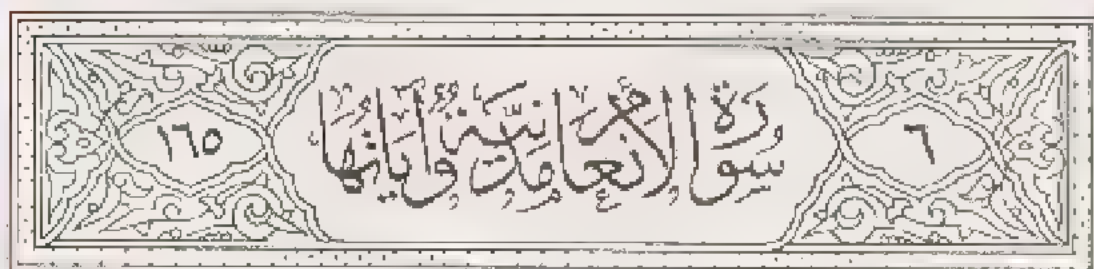 ٦ سُورَةُ الأَنْعَامِ مَدَنِيَّةٌ وَآيَاتُهَا ١٦٥